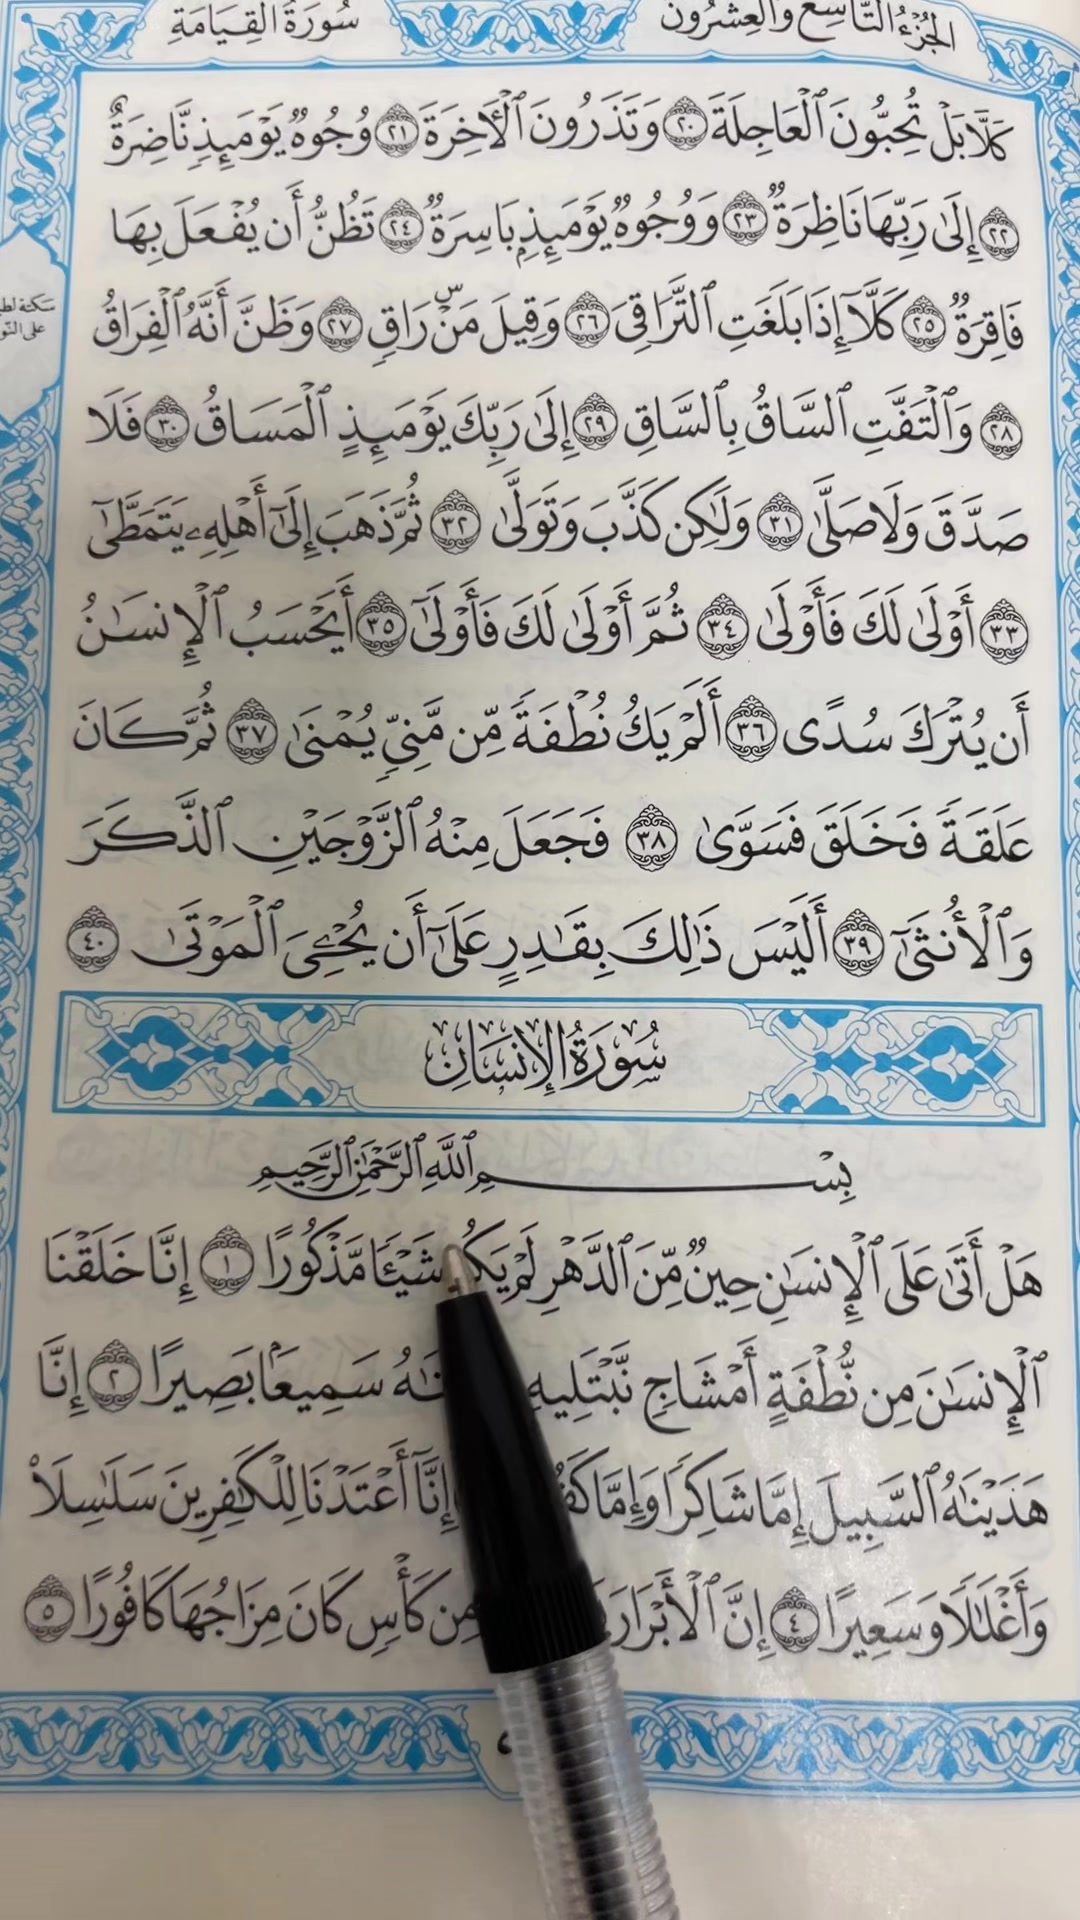 الجُزْءُ التَّاسِعُ وَالعِشْرُونَ
سُورَةُ القِيَامَةِ
كَلَّا بَلْ تُحِبُّونَ ٱلْعَاجِلَةَ ٢٠ وَتَذَرُونَ ٱلْأٓخِرَةَ ٢١ وُجُوهٞ يَوْمَئِذٖ نَّاضِرَةٌ
٢٢ إِلَىٰ رَبِّهَا نَاظِرَةٞ ٢٣ وَوُجُوهٞ يَوْمَئِذِۭ بَاسِرَةٞ ٢٤ تَظُنُّ أَن يُفْعَلَ بِهَا
فَاقِرَةٞ ٢٥ كَلَّآ إِذَا بَلَغَتِ ٱلتَّرَاقِيَ ٢٦ وَقِيلَ مَنْۜ رَاقٖ ٢٧ وَظَنَّ أَنَّهُ ٱلْفِرَاقُ
٢٨ وَٱلْتَفَّتِ ٱلسَّاقُ بِٱلسَّاقِ ٢٩ إِلَىٰ رَبِّكَ يَوْمَئِذٍ ٱلْمَسَاقُ ٣٠ فَلَا
صَدَّقَ وَلَا صَلَّىٰ ٣١ وَلَٰكِن كَذَّبَ وَتَوَلَّىٰ ٣٢ ثُمَّ ذَهَبَ إِلَىٰٓ أَهْلِهِۦ يَتَمَطَّىٰٓ
٣٣ أَوْلَىٰ لَكَ فَأَوْلَىٰ ٣٤ ثُمَّ أَوْلَىٰ لَكَ فَأَوْلَىٰٓ ٣٥ أَيَحْسَبُ ٱلْإِنسَٰنُ
أَن يُتْرَكَ سُدًى ٣٦ أَلَمْ يَكُ نُطْفَةٗ مِّن مَّنِيّٖ يُمْنَىٰ ٣٧ ثُمَّ كَانَ
عَلَقَةٗ فَخَلَقَ فَسَوَّىٰ ٣٨ فَجَعَلَ مِنْهُ ٱلزَّوْجَيْنِ ٱلذَّكَرَ
وَٱلْأُنثَىٰٓ ٣٩ أَلَيْسَ ذَٰلِكَ بِقَٰدِرٍ عَلَىٰٓ أَن يُحْـِۧيَ ٱلْمَوْتَىٰ ٤٠
سُورَةُ الإِنسَانِ
بِسْمِ ٱللَّهِ ٱلرَّحْمَٰنِ ٱلرَّحِيمِ
هَلْ أَتَىٰ عَلَى ٱلْإِنسَٰنِ حِينٞ مِّنَ ٱلدَّهْرِ لَمْ يَكُ شَيْـٔٗا مَّذْكُورًا ١ إِنَّا خَلَقْنَا
ٱلْإِنسَٰنَ مِن نُّطْفَةٍ أَمْشَاجٖ نَّبْتَلِيهِ سَمِيعَۢا بَصِيرًا ٢ إِنَّا
هَدَيْنَٰهُ ٱلسَّبِيلَ إِمَّا شَاكِرٗا وَإِمَّا إِنَّآ أَعْتَدْنَا لِلْكَٰفِرِينَ سَلَٰسِلَاْ
وَأَغْلَٰلٗا وَسَعِيرًا ٤ إِنَّ ٱلْأَبْرَارَ مِن كَأْسٖ كَانَ مِزَاجُهَا كَافُورًا ٥